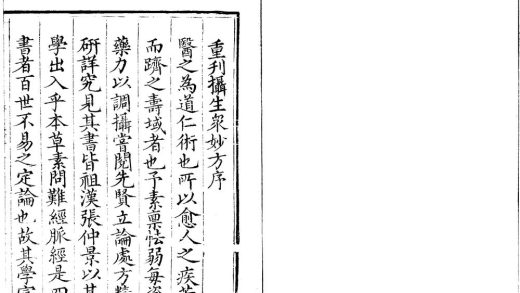 重刊攝生衆妙方序
醫之為道仁術也所以愈人之疾苦
而躋之壽域者也予素禀怯弱每資
藥力以調攝嘗閱先賢立論處方精
研詳究見其書皆祖漢張仲景以其
學出入乎本草素問難經脈經是四
書者百世不易之定論也故其學